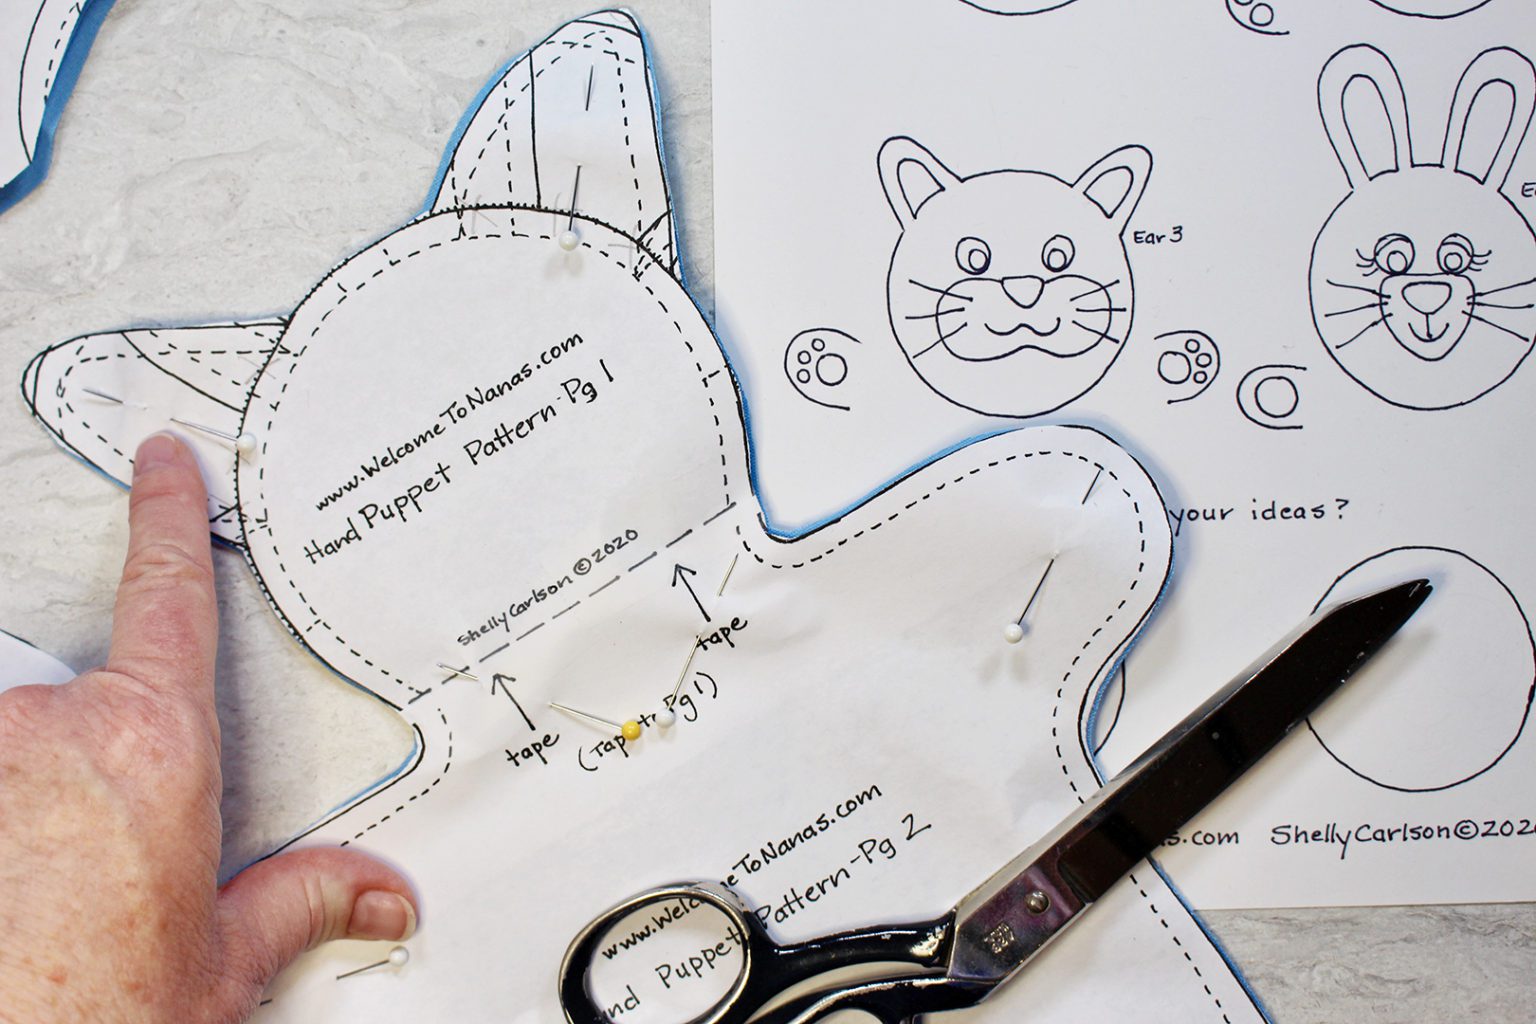 www.WelcomeToNanas.com
Hand Puppet Pattern-Pg 1
ShellyCarlson©2020
tape
tape
(Tape to Pg 1)
www.WelcomeToNanas.com
Hand Puppet Pattern-Pg 2
Ear 3
your ideas?
s.com ShellyCarlson©202